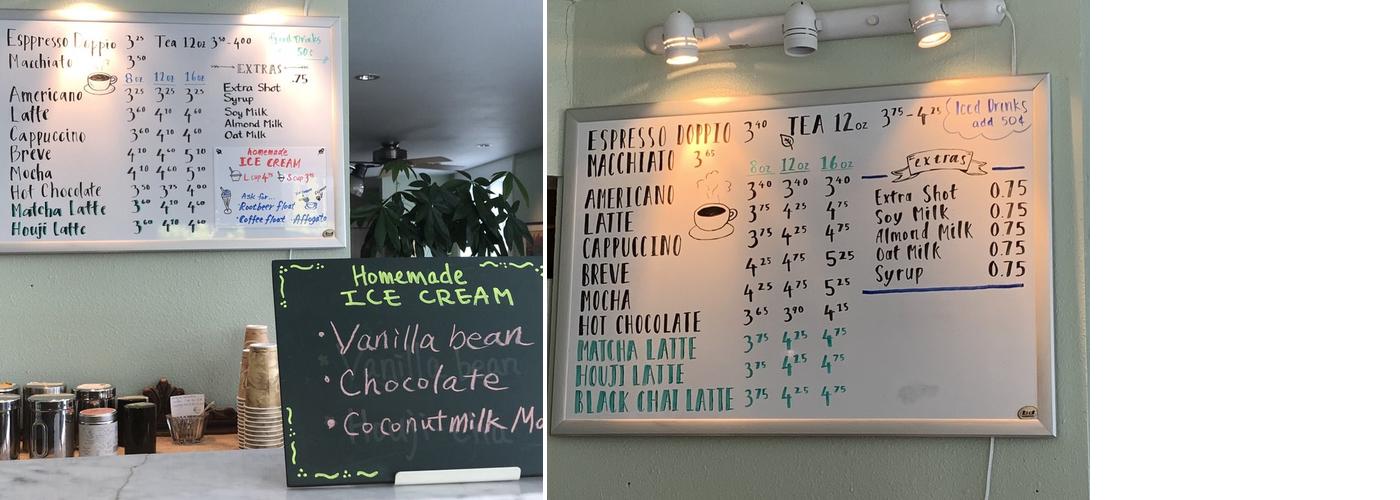 Esppresso Doppio 3.25 Tea 12oz 3.50-4.00
Macchiato 3.50
50¢
EXTRAS
.75
8oz 12oz 16oz
Americano 3.25 3.25 3.25
Latte 3.60 4.10 4.60
Cappuccino 3.60 4.10 4.60
Breve 4.10 4.60 5.10
Mocha 4.10 4.60 5.10
Hot Chocolate 3.50 3.75 4.00
Matcha Latte 3.60 4.10 4.60
Houji Latte 3.60 4.10 4.60
Extra Shot
Syrup
Soy Milk
Almond Milk
Oat Milk
homemade
ICE CREAM
Ask for...
Rootbeer float
Coffee float Affogato
Homemade
ICE CREAM
Vanilla bean
Chocolate
Coconutmilk
ESPRESSO DOPPIO 3.40 TEA 12oz 3.75-4.25
MACCHIATO 3.65
Iced Drinks
add 50¢
8oz 12oz 16oz
AMERICANO 3.40 3.40 3.40
LATTE 3.75 4.25 4.75
CAPPUCCINO 3.75 4.25 4.75
BREVE 4.25 4.75 5.25
MOCHA 4.25 4.75 5.25
HOT CHOCOLATE 3.65 3.90 4.15
MATCHA LATTE 3.75 4.25 4.75
HOUJI LATTE 3.75 4.25 4.75
BLACK CHAI LATTE 3.75 4.25 4.75
extras
Extra Shot 0.75
Soy Milk 0.75
Almond Milk 0.75
Oat Milk 0.75
Syrup 0.75